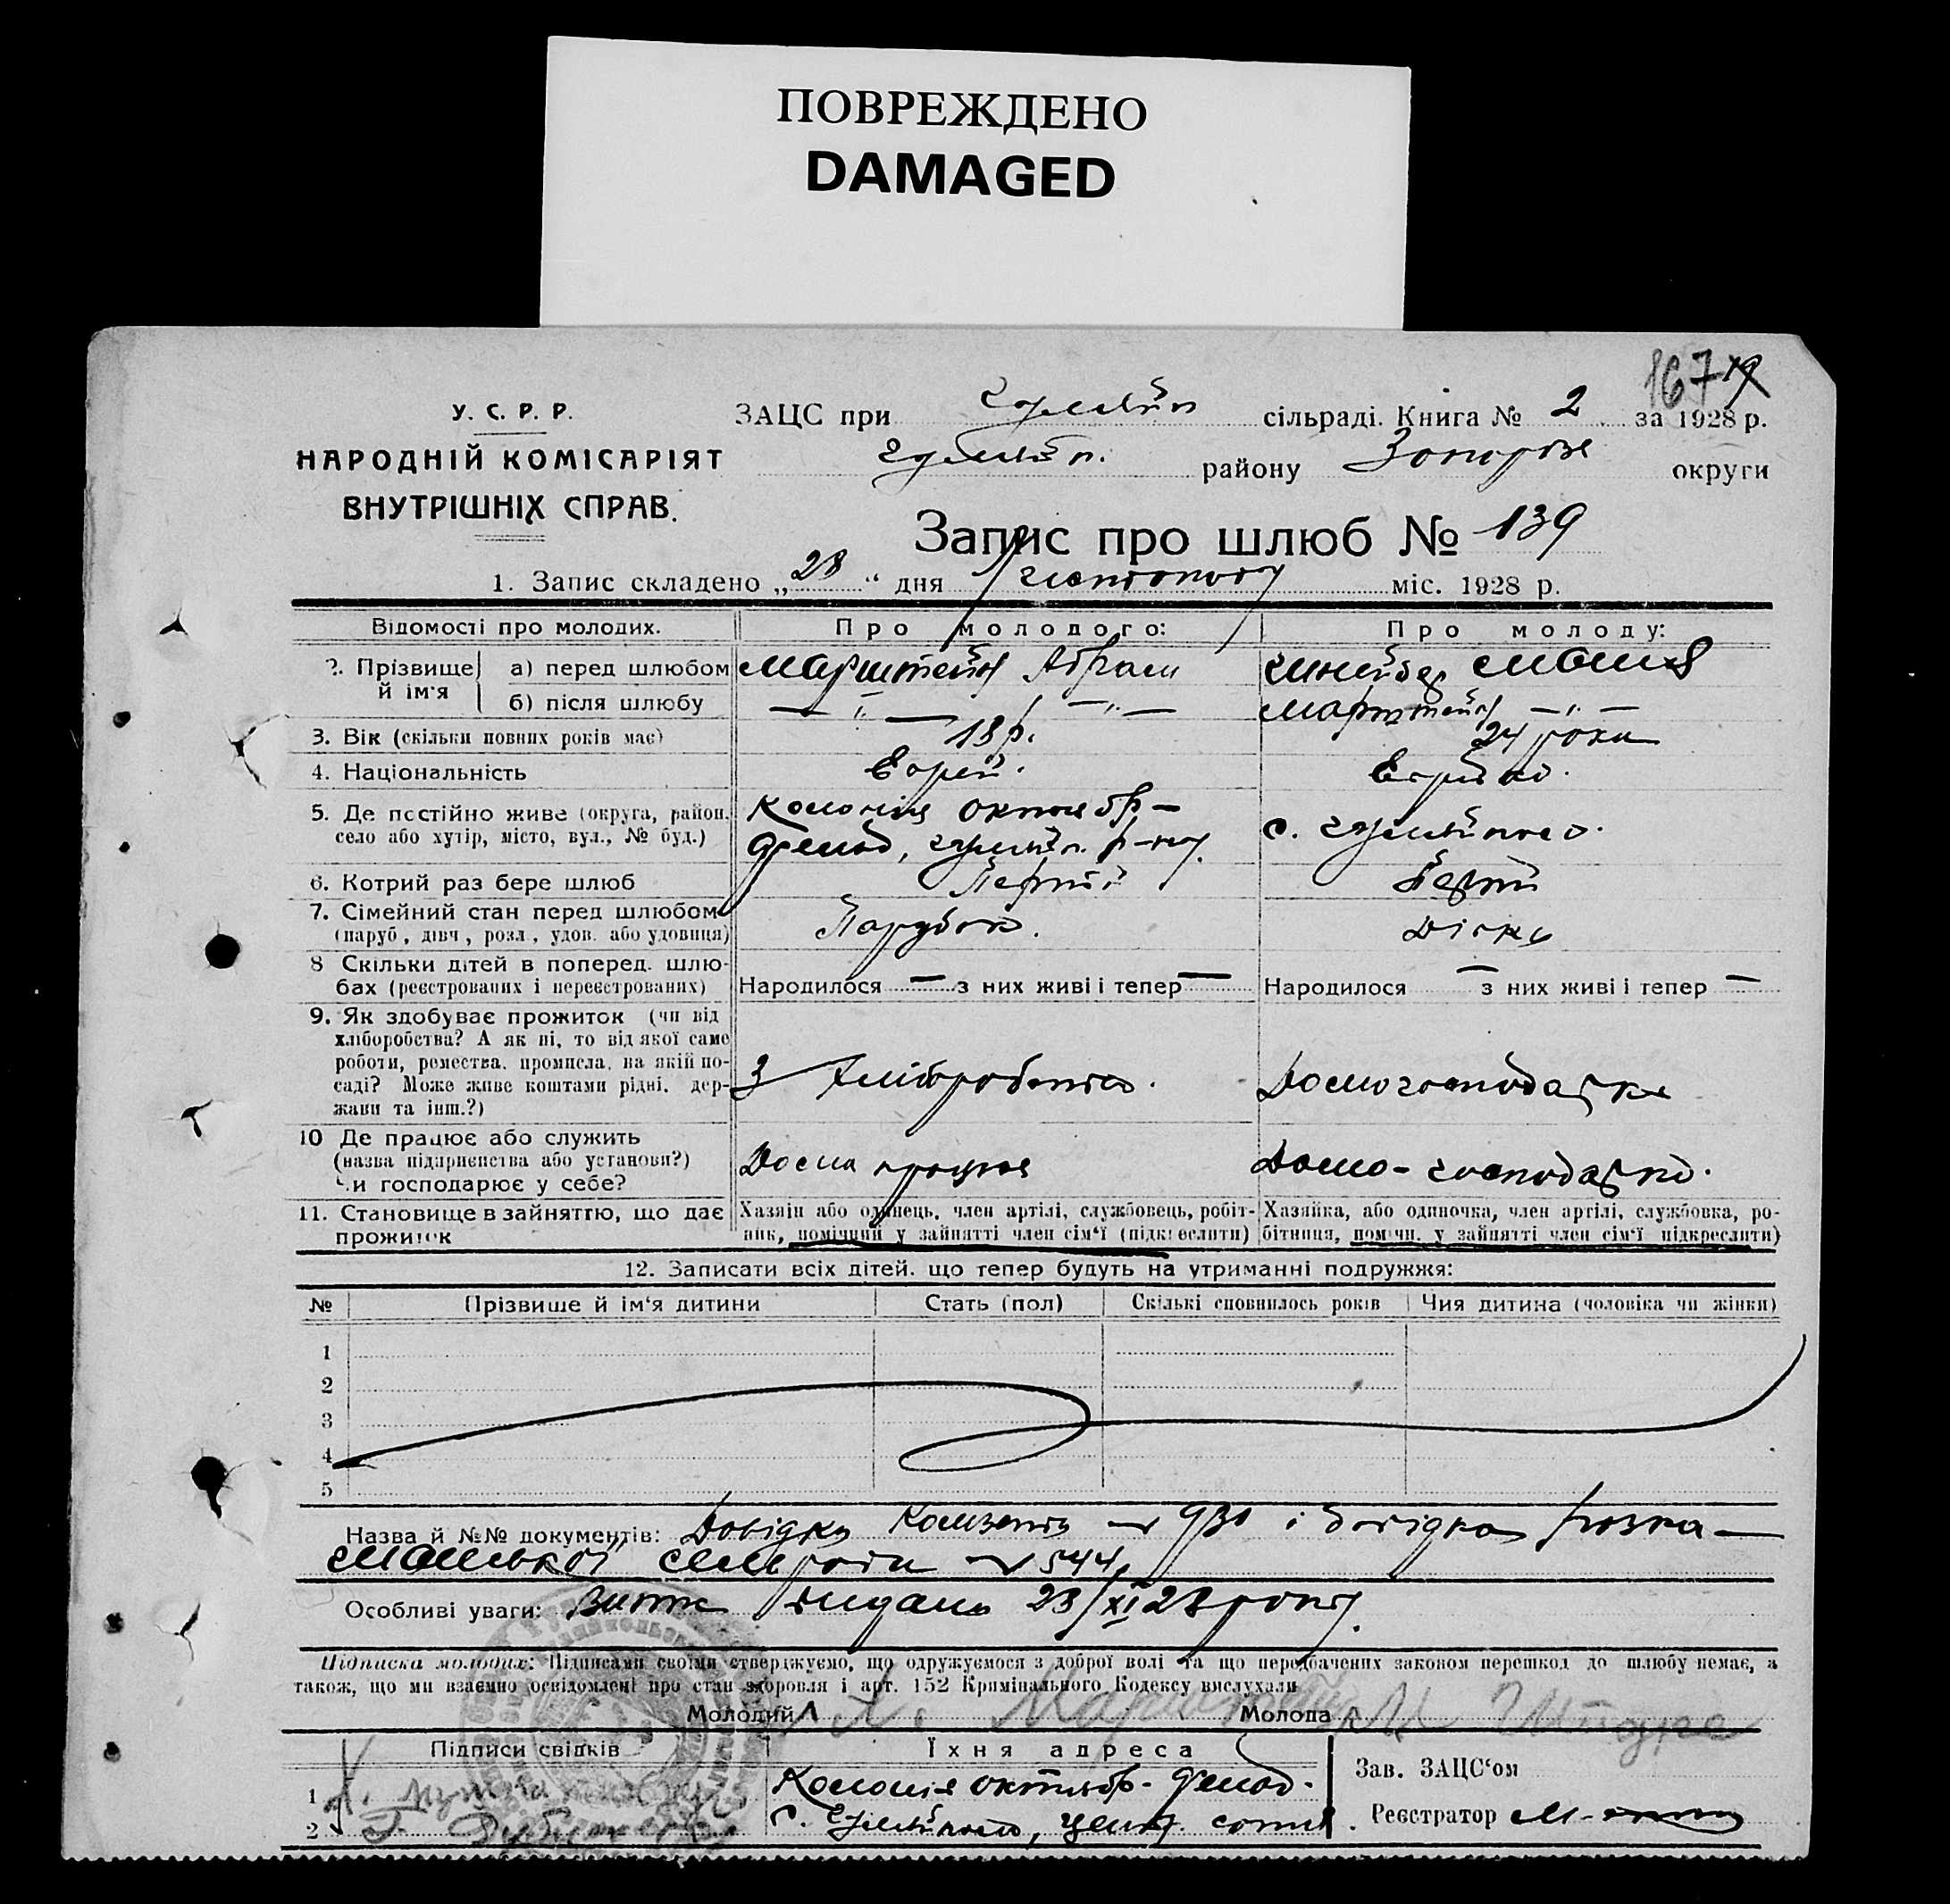 ПОВРЕЖДЕНО
DAMAGED
167 19
У. С. Р. Р.
НАРОДНІЙ КОМІСАРІЯТ
ВНУТРІШНІХ СПРАВ.
ЗАЦС при Гуляйп сільраді. Книга № 2 за 1928 р.
Гуляйп. району Запорізк округи
Запис про шлюб № 139
1. Запис складено „28“ дня листопаду міс. 1928 р.
Відомості про молодих.
Про молодого:
Про молоду:
2. Прізвище й ім'я
а) перед шлюбом
Марштейн Абрам
Шнейдер Маня
б) після шлюбу
— „ — — „ —
Марштейн — „ —
3. Вік (скільки повних років має)
18 р.
24 роки
4. Національність
Еврей.
Еврейка.
5. Де постійно живе (округа, район, село або хутір, місто, вул., № буд.)
Колонія октябр-
фельд, гуляйп. р-ну.
с. гуляйполе.
6. Котрий раз бере шлюб
Перший
Перший
7. Сімейний стан перед шлюбом
(паруб, дівч, розл, удов. або удовиця)
Парубок.
Дівка
8 Скільки дітей в поперед. шлю-
бах (реєстрованих і нереєстрованих)
Народилося — з них живі і тепер —
Народилося — з них живі і тепер —
9. Як здобуває прожиток (чи від
хліборобства? А як ні, то від якої саме
роботи, ремества, промисла, на якій по-
саді? Може живе коштами рідні, дер-
жави та інш.?)
З хліборобства.
Домогосподарка
10 Де працює або служить
(назва підприємства або установи?)
Чи господарює у себе?
Дома працює
Домо-господарка.
11. Становище в зайняттю, що дає
прожиток
Хазяін або одинець, член артілі, службовець, робіт-
ник, помічний у зайнятті член сім'ї (підкреслити)
Хазяйка, або одиночка, член артілі, службовка, ро-
бітниця, помічн. у зайнятті член сім'ї підкреслити)
12. Записати всіх дітей, що тепер будуть на утриманні подружжя:
№
Прізвище й ім'я дитини
Стать (пол)
Скількі сповнилось років
Чия дитина (чоловіка чи жінки)
1
2
3
4
5
Назва й №№ документів: Довідка 930 і довідка
544
Особливі уваги: видано 28/XI 28 року.
Підписка молодих: Підписами своїми стверджуємо, що одружуємося з доброї волі та що передбачених законом перешкод до шлюбу немає, а
також, що ми взаємно освідомлені про стан здоровля і арт. 152 Кримінального Кодексу вислухали
Молодий А. Марштейн
Молода
Підписи свідків
Їхня адреса
Зав. ЗАЦС‘ом
1
Колонія октябр- фельд.
2
с. Гуляйполе, центр. сотня.
Реєстратор